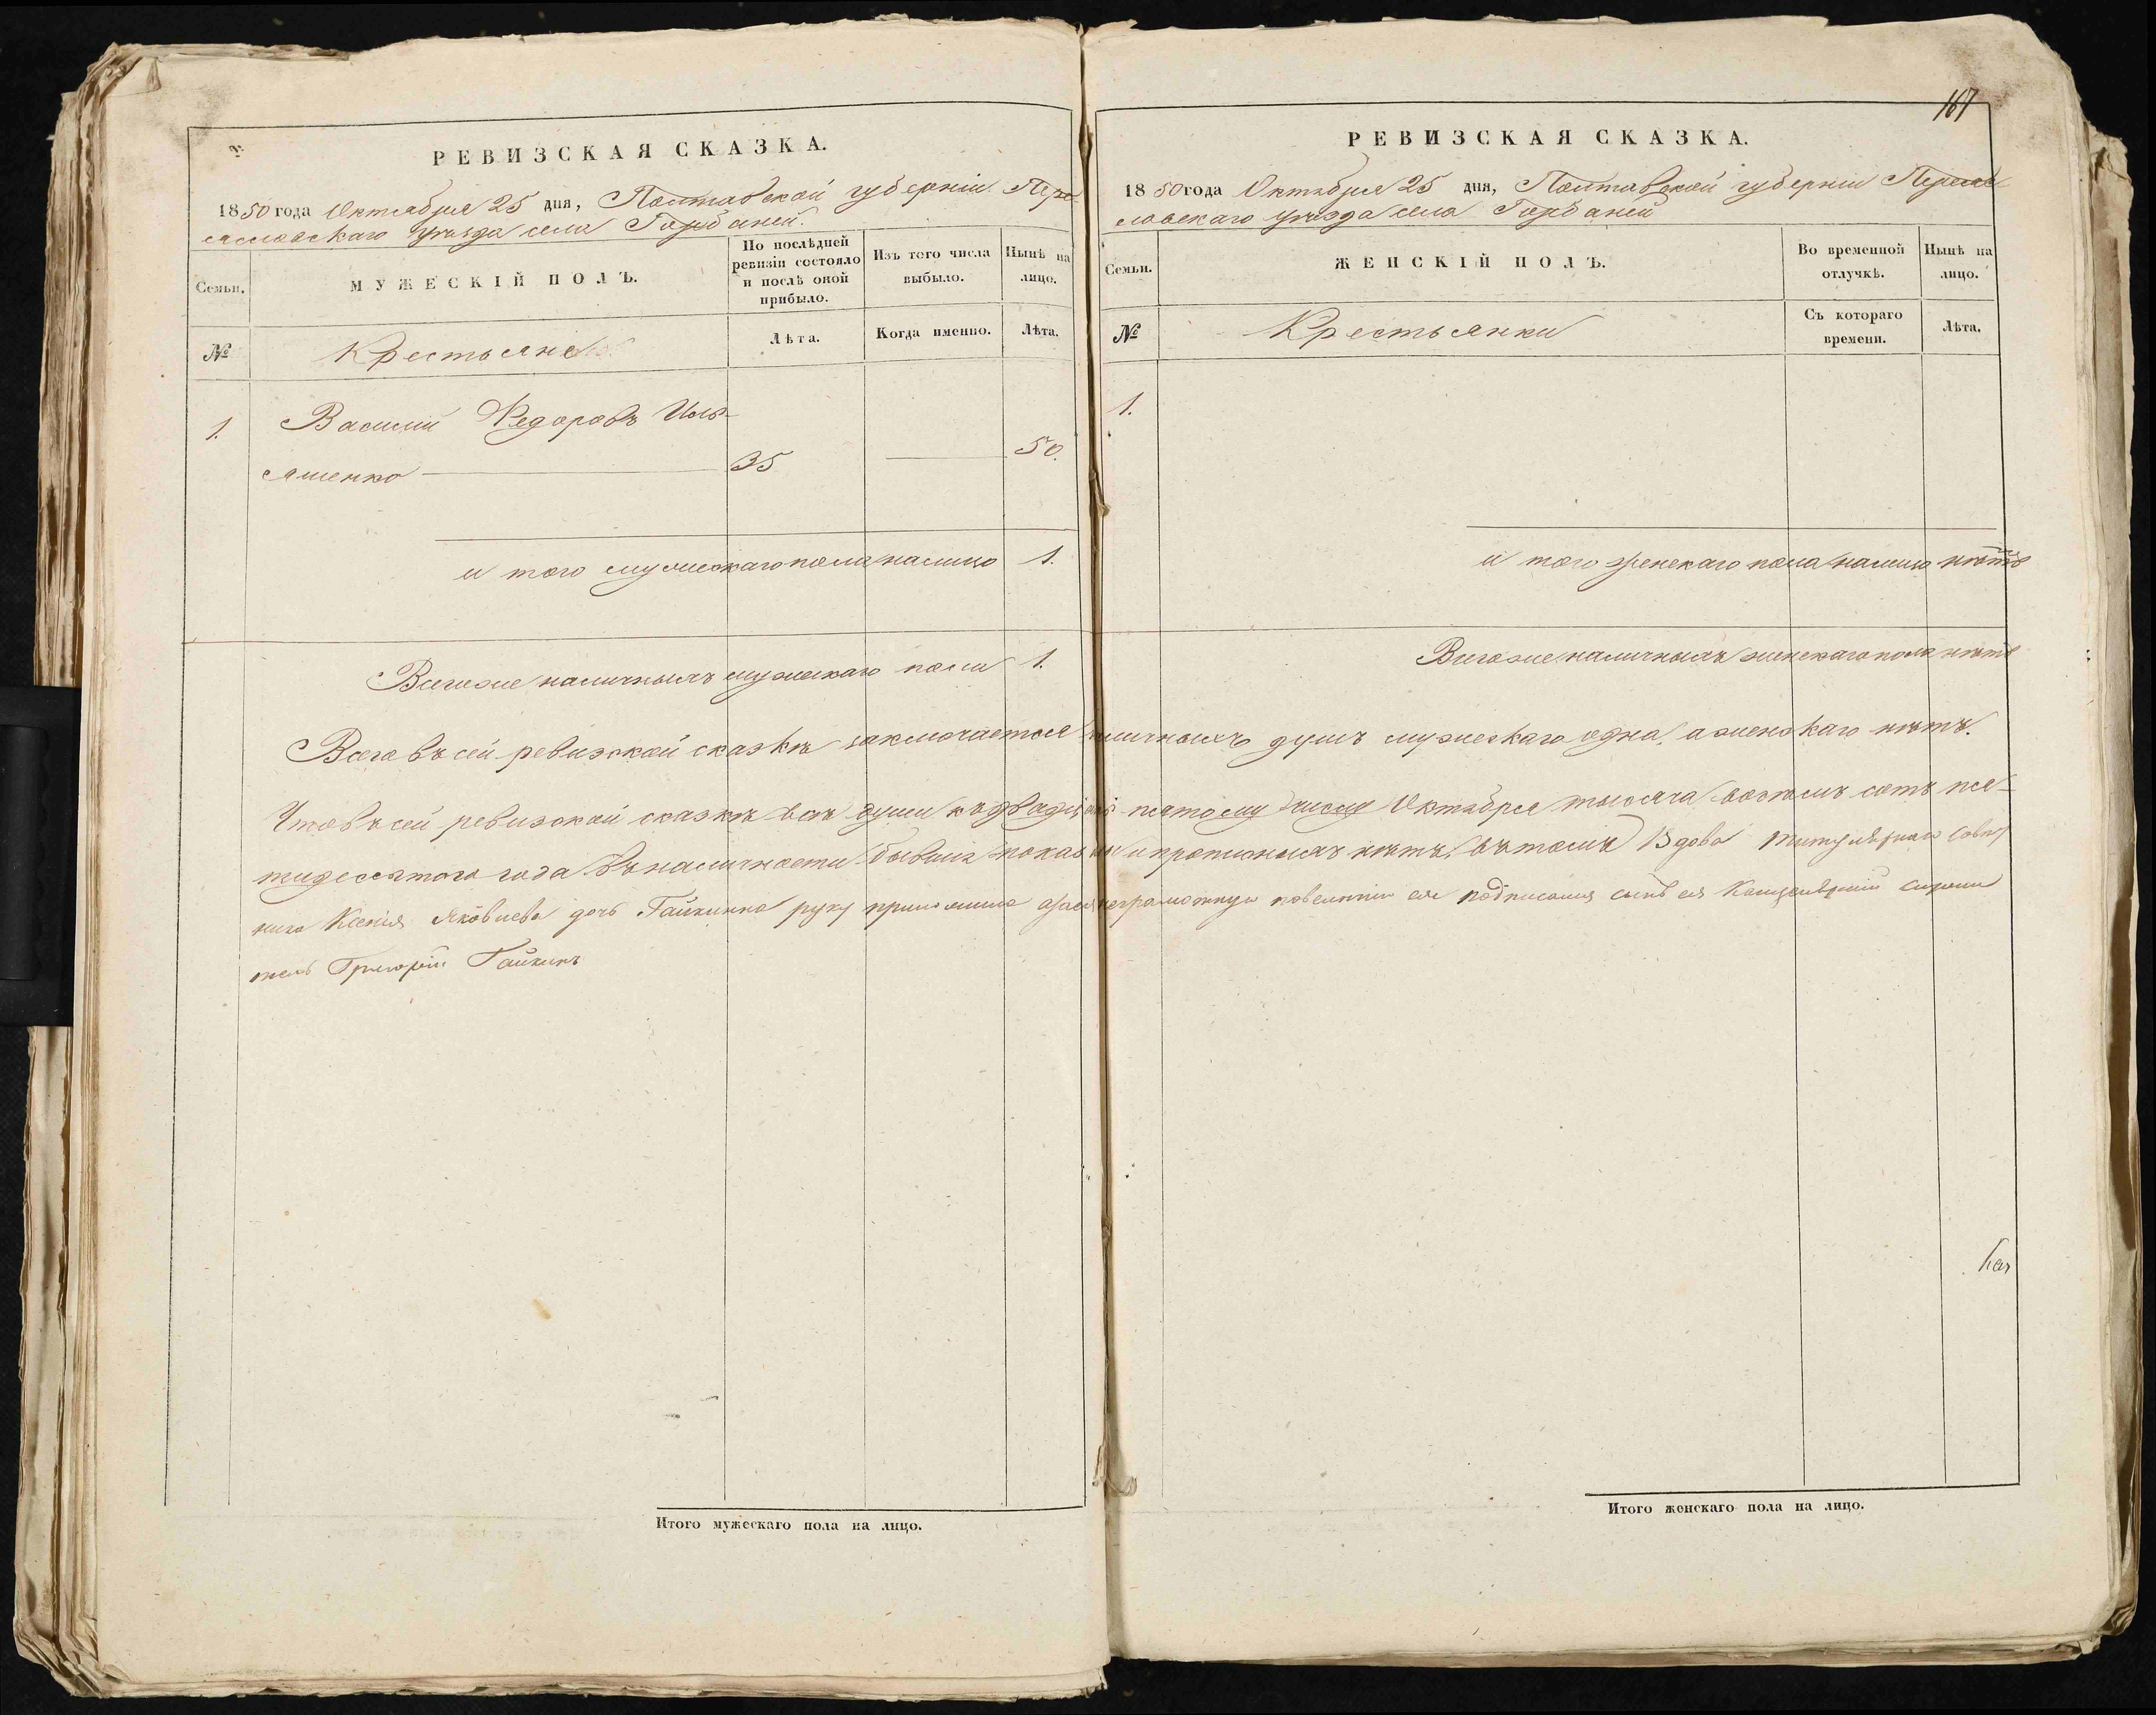 РЕВИЗСКАЯ СКАЗКА.
1850 года Октября 25 дня, Полтавской губерніи Пере-
яславскаго уѣзда села Горбаней.
Семьи.
МУЖЕСКІЙ ПОЛЪ.
По послѣдней ревизіи состояло и послѣ оной прибыло.
Изъ того числа выбыло.
Нынѣ на лицо.
№
Крестьяне
Лѣта.
Когда именно.
Лѣта.
1. Василий Федоровъ Иль-
яшенко 35 50.
и того мужескаго пола налицо 1.
Всегоже наличныхъ мужескаго пола 1.
167
РЕВИЗСКАЯ СКАЗКА.
1850 года Октября 25 дня, Полтавской губерніи Переяс-
лавскаго уѣзда села Горбаней
Семьи.
ЖЕНСКІЙ ПОЛЪ.
Во временной отлучкѣ.
Нынѣ на лицо.
№
Крестьянки
Съ котораго времени.
Лѣта.
1.
и того женскаго пола налицо нѣтъ
Всегоже наличныхъ женскаго пола нѣтъ
Всего въ сей ревизской сказкѣ заключается наличныхъ душъ мужескаго одна, а женскаго нѣтъ.
Что въ сей ревизской сказкѣ всѣ души къ двадцать пятому числу Октября тысяча восемь сотъ пя-
тидесятого года въ наличности бывшія показаны и прописныхъ нѣтъ, въ томъ Вдова титулярнаго Совѣт
ника Ксенія Яковлева дочь Гайкина руку приложила а за ея неграмотную повелѣнію ея подписался сынъ ея Канцелярскій служи
тель Григорій Гайкинъ
Итого мужескаго пола на лицо.
Итого женскаго пола на лицо.